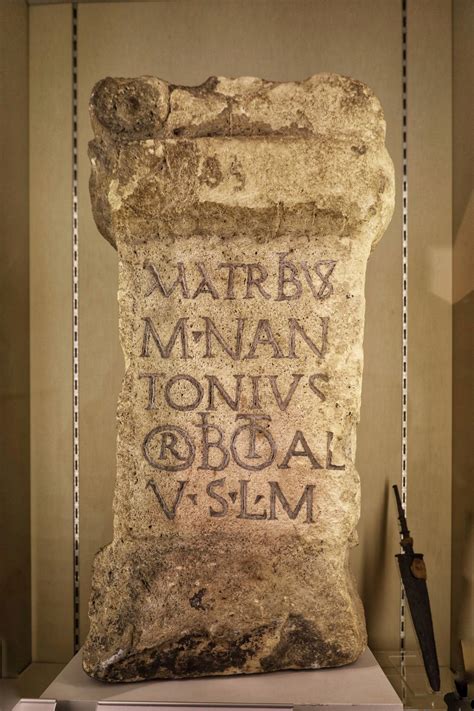 MATRIBVS
M·NAN
TONIVS
ORBIOTAL
V·S·L·M